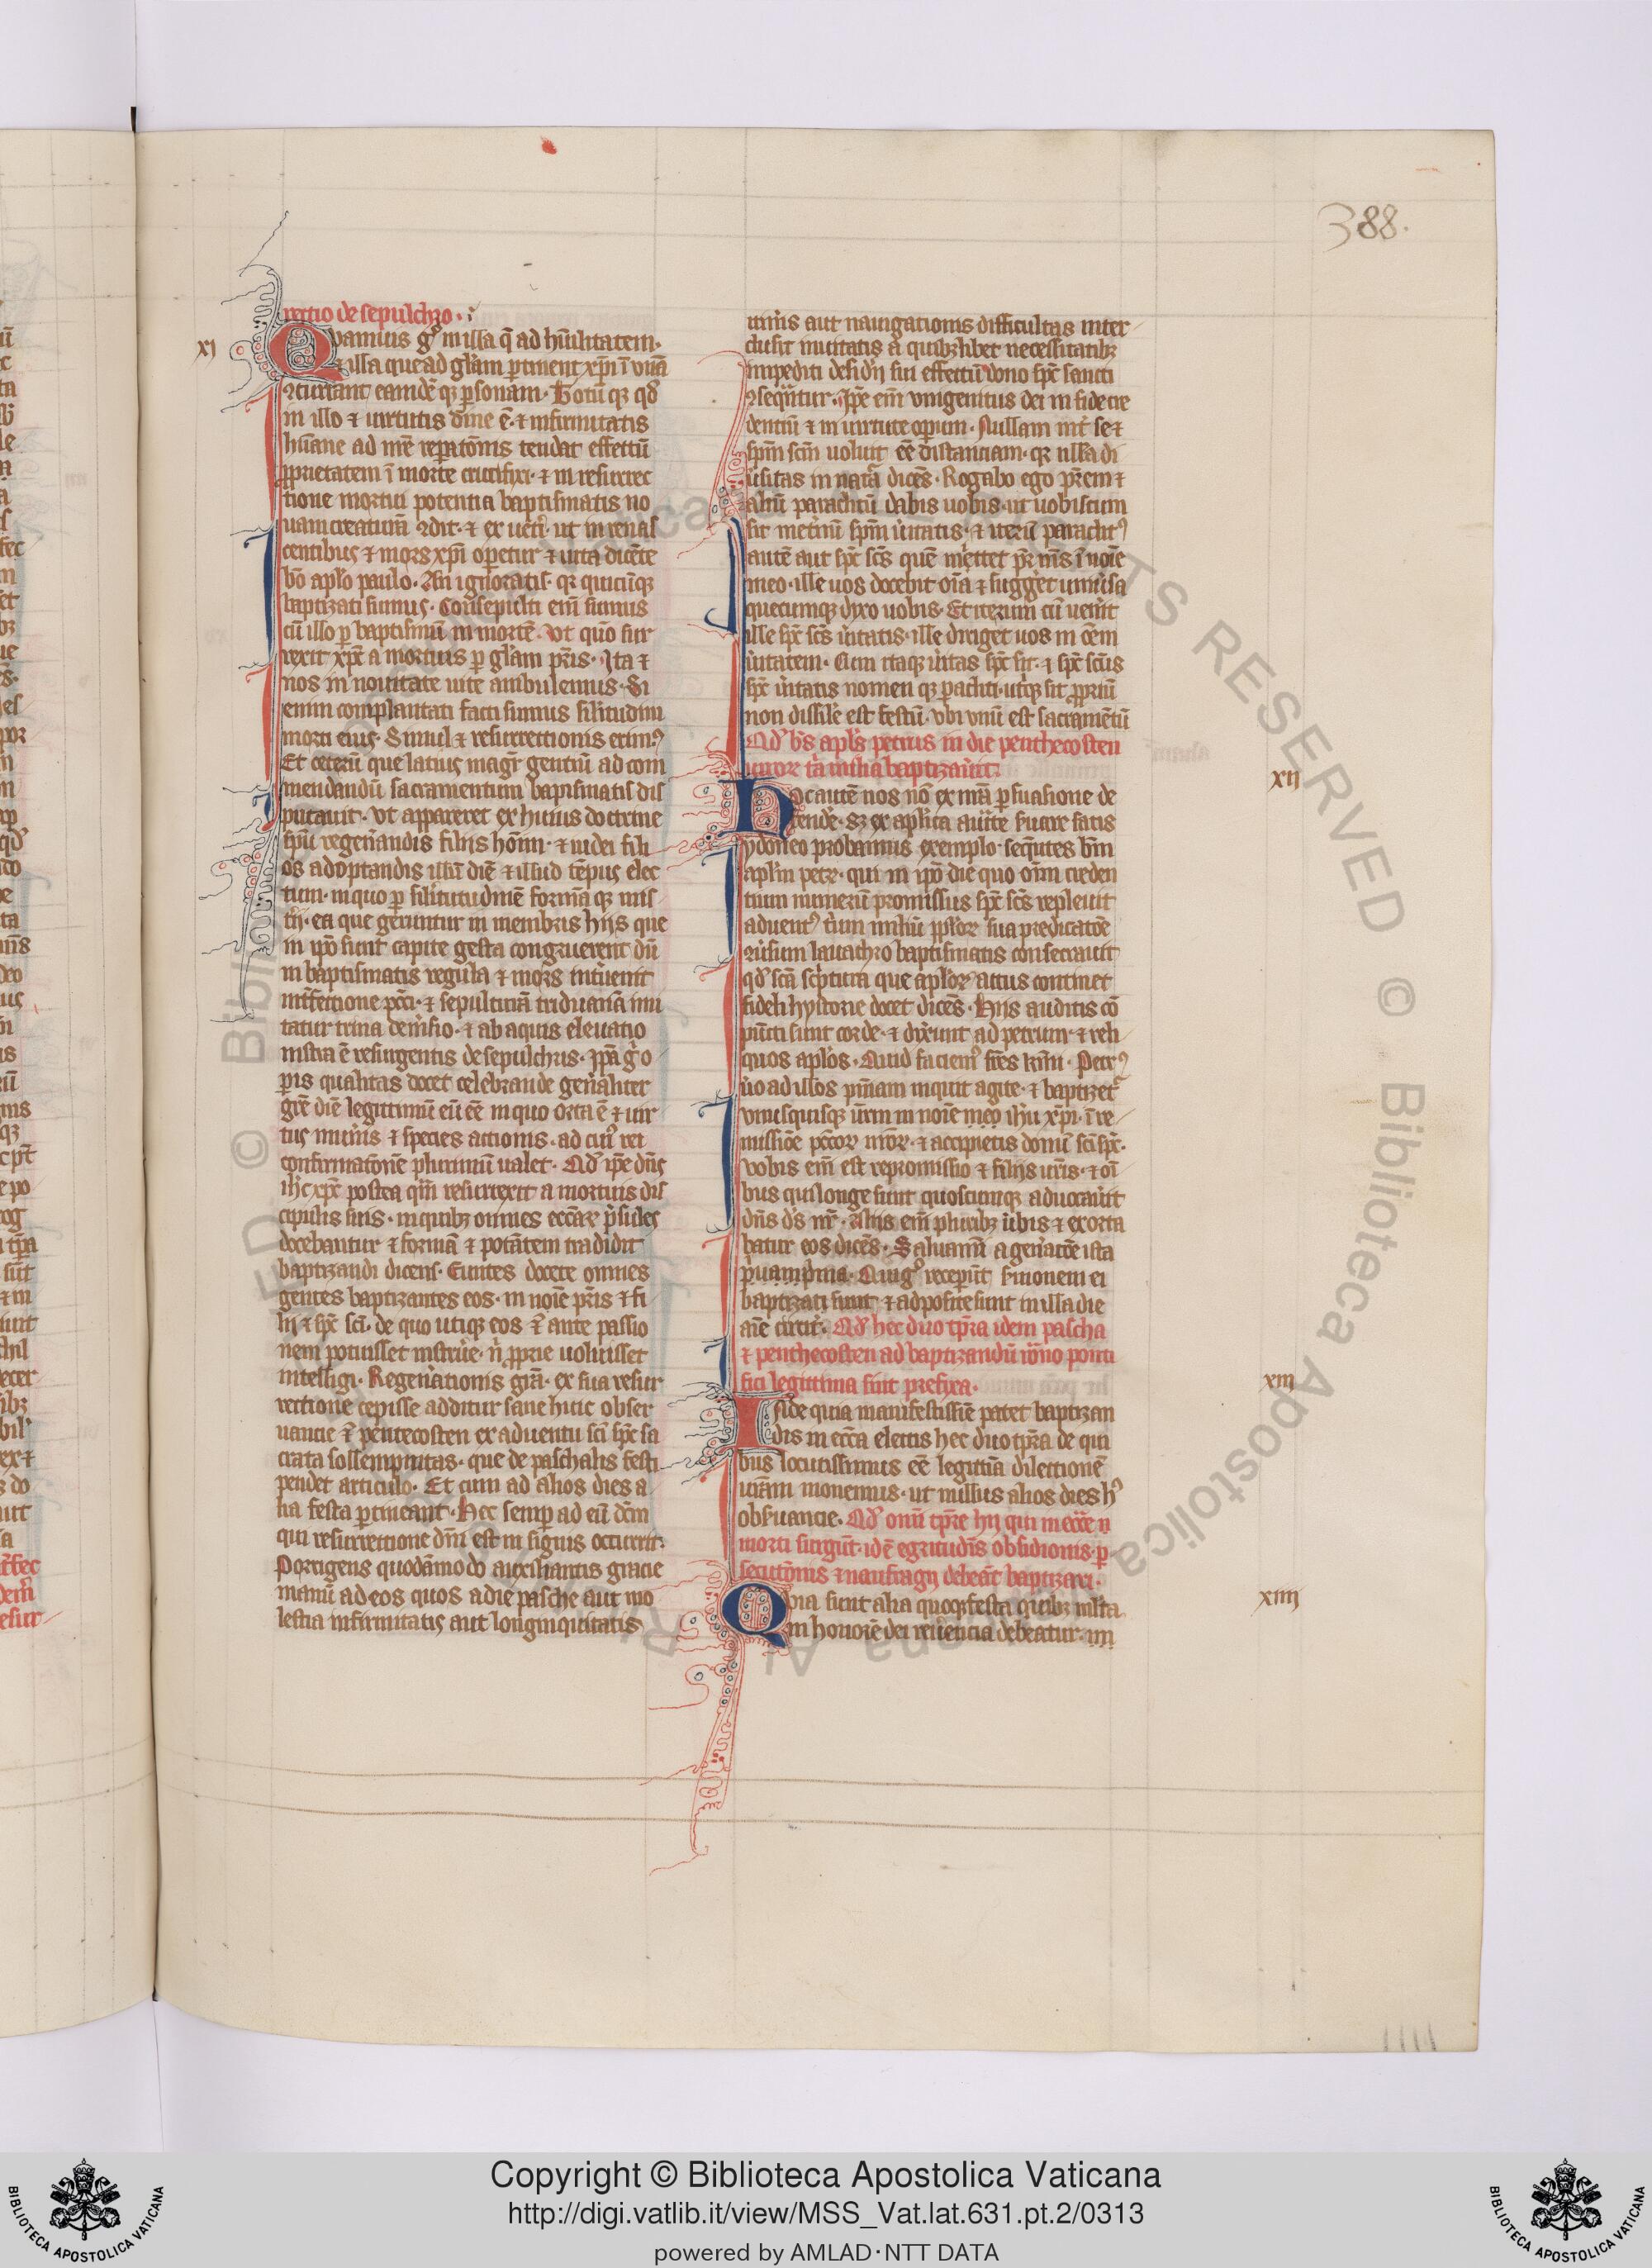 388.
rectio de sepulchro.
xi
Quamuis gͦ in illa q̄ ad hūilitatem.
⁊ illa que ad glām ꝑtinent xp̄i ī vnā
ꝯcurrant eamdē qꝫ ꝑsonam. Totū qꝫ qđ
in illo ⁊ uirtutis diuīe ē. ⁊ infirmitatis
hūane ad nr̄e reꝑatōnis tendat effectū
ꝓprietatem ī morte crucifixi. ⁊ in resurrec
tione mortui potentia baptismatis no
uam creaturā ꝯdit. ⁊ ex ueti. ut in renas
centibus ⁊ mors xp̄i oꝑetur ⁊ uita dicēte
bō apl̓o paulo. An ignoratis. qꝛ quicūqꝫ
baptizati sumus. Consepulti em̄ sumus
cū illo ꝑ baptismū in mortē. vt quō sur
rexit xp̄c a mortuis ꝑ glām pr̄is. Ita ⁊
nos in nouitate uite ambulemus. Si
enim complantati facti sumus silitudini
morti eius. Simul ⁊ resurrectionis erimꝰ
Et ceterū que latius magr̄ gentiū ad com
mendandū sacramentum baptismatis dis
putauit. vt appareret ex huius doctrine
sp̄u regen̄andis filiis hoīm. ⁊ in dei fili
os adoptandis illū diē ⁊ illud tēpus elec
tum. in quo ꝑ
tri. ea que geruntur in membris hiis que
in ip̄o sunt capite gesta congruerent dū
in baptismatis regula ⁊ mors intuenit
int̄fectione pccī. ⁊ sepulturā triduanā imi
tatur trina dem̓sio. ⁊ ab aquis eleuatio
instra ē resurgentis de sepulchris. Ip̄a gͦ o
ꝑis qualitas docet celebrande gen̄aliter
gr̄e diē legittimū eū eē in quo orta ē ⁊ uir
tus mun̓is ⁊ species actionis. ad cuiꝰ rei
confirmatōnē plurimū ualet. Qđ ip̄e dn̄s
ih̄c xp̄c postea qm̄ resurrexit a mortuis dis
cipulis suis. in quibꝫ omnes
docebantur ⁊ formā ⁊ potātem tradidit
baptizandi dicens. Euntes docete omnes
gentes baptizantes eos. in noīe pr̄is ⁊ fi
lii ⁊ sp̄c sci. de quo utiqꝫ eos ⁊ ante passio
nem potuisset instrue. nͥ ꝓprie uoluisset
intelligi. Regen̄ationis grā. ex sua resur
rectione cepisse additur sane huic obser
uancie ⁊ pentecosten ex aduentu sci sp̄c sa
crata sollempnitas. que de paschalis festi
pendet articulo. Et cum ad alios dies a
lia festa ꝑtineant. Hec semꝑ ad eū dem̄
qui resurrectione dn̄i est in signis occurrit.
Porrigens quodāmodo auxiliantis gracie
manū ad eos quos a die pasche aut mo
lestia infirmitatis aut longinquitatis
itineris aut nauigationis difficultas inter
clusit inuitatis a quibꝫlibet necessitatibꝫ
impediti desid̓ii sui effectū dono sp̄c sancti
ꝯsequntur. Ip̄e em̄ vnigenitus dei in fide cre
dentiū ⁊ in uirtute oꝑum. Nullam int̓ se ⁊
sp̄m scm̄ uoluit eē distanciam. qꝛ nlla di
u̓sitas in natā dicēs. Rogabo ego pr̄em ⁊
aliū paraclitū dabit uobis. ut uobiscum
sit inet̓nū sp̄m u̓itatis. ⁊ iterū paraclitꝰ
autē aut sp̄c scs̄ quē mittet pr̄ m̄s ī noīe
meo. ille uos docebit oīa ⁊ sugget uniu̓sa
quecumqꝫ dixo uobis. Et iterum cū uenit
ille sp̄c scs̄ u̓itatis. ille diriget uos in oēm
u̓itatem. Cum itaqꝫ u̓itas sp̄c sit. ⁊ sp̄c scūs
sp̄c u̓itatis nomen qꝫ ꝑacliti. utiqꝫ sit ꝓpriū
non dissile est festū. vbi vnū est sacramētū
Qđ b̄s apl̓s petrus in die penthecosten
tria milia baptizauit.
xii
Hoc autē nos nō ex nr̄a ꝑsuasione de
fendē. sꝫ ex apl̓ica auc̄te satis
ydoneo probamus exemplo. seqn̄tes bm̄
apl̓m petr̄. qui in ip̄o die quo oīm creden
tium numerū promissus sp̄c scs̄ repleuit
aduentꝰ triū miliū ppl̓orꝫ sua predicatōe
ꝯu̓sum lauachro baptismatis consecrauit
qđ scā sc̓ptura que apl̓orꝫ actus continet
fideli hystorie docet dicēs. Hiis auditis cō
puncti sunt corde. ⁊ dix̓unt ad petrum. ⁊ reli
quos apl̓os. Quid faciemꝰ fr̄es Petrꝰ
u̓o ad illos pn̄iam inquit agite. ⁊ baptizetͬ
vnusquisqꝫ ur̄m in noīe meo ih̓u xp̄i. ī re
missiōe pccōrꝫ ⁊ accipietis donū sci sp̄c.
vobis em̄ est repromissio ⁊ filiis ur̄is. ⁊ oī
bus qui longe sunt quoscumqꝫ aduocau̓it
dn̄s ds̄ nr̄. Aliis em̄ pluribꝫ u̓bis ⁊ exorta
batur eos dicēs. Saluamī a gen̓atōe ista
praua Qui gͦ receperūt sermonem ei
baptizati sunt. ⁊ adposite sunt in illa die
aīe circit̓. Qđ hec duo tp̄ra idem pascha
⁊ penthecosten ad baptizandū romano ponti
fici legittima sunt prefixa.
xiii
Iside quia manifestissīe patet baptizan
dis in ecc̄a electis hec duo tp̄ra de qui
bus locutissimus eē legittīa dilectionē
ur̄am monemus. ut nullus alios dies hꝰ
obs̓uancie. Qđ oni tp̄re hii qui in
morti surgūt. idē egritudīs obsidionis. ꝑ
secutōnis ⁊ naufragii debeāt baptizari.
xiiii
Quia sunt alia quoqꝫ festa quibꝫ mlta
in honorē dei reu̓encia debeatur. in
Copyright © Biblioteca Apostolica Vaticana
http://digi.vatlib.it/view/MSS_Vat.lat.631.pt.2/0313
powered by AMLAD·NTT DATA
BIBLIOTECA APOSTOLICA VATICANA
BIBLIOTECA APOSTOLICA VATICANA